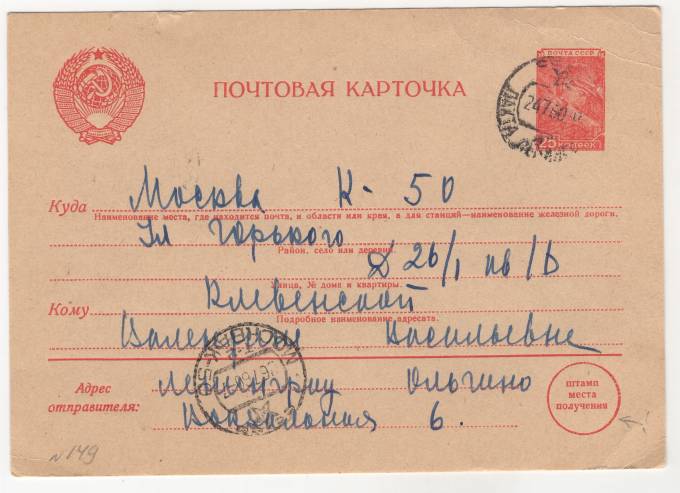 ПОЧТА СССР
ПОЧТОВАЯ КАРТОЧКА
24 7 60
25 КОПЕЕК
Куда Москва К-50
Наименование места, где находится почта, и области или края, а для станций—наименование железной дороги.
Ул Горького
Район, село или деревня.
Д 26/1 кв 1Б
Улица, № дома и квартиры.
Кому Клевенской
Подробное наименование адресата.
Валентине Васильевне
МОСКВА К-50
Адрес отправителя: Ленинград Ольгино
Вокзальная 6.
штамп
места
получения
N 149